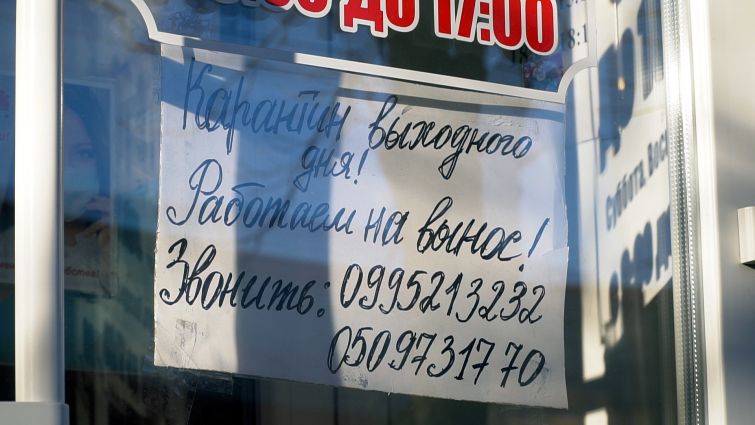 до 17:00
Карантин выходного
дня!
Работаем на вынос!
Звонить: 0995213232
0509731770
Суббота